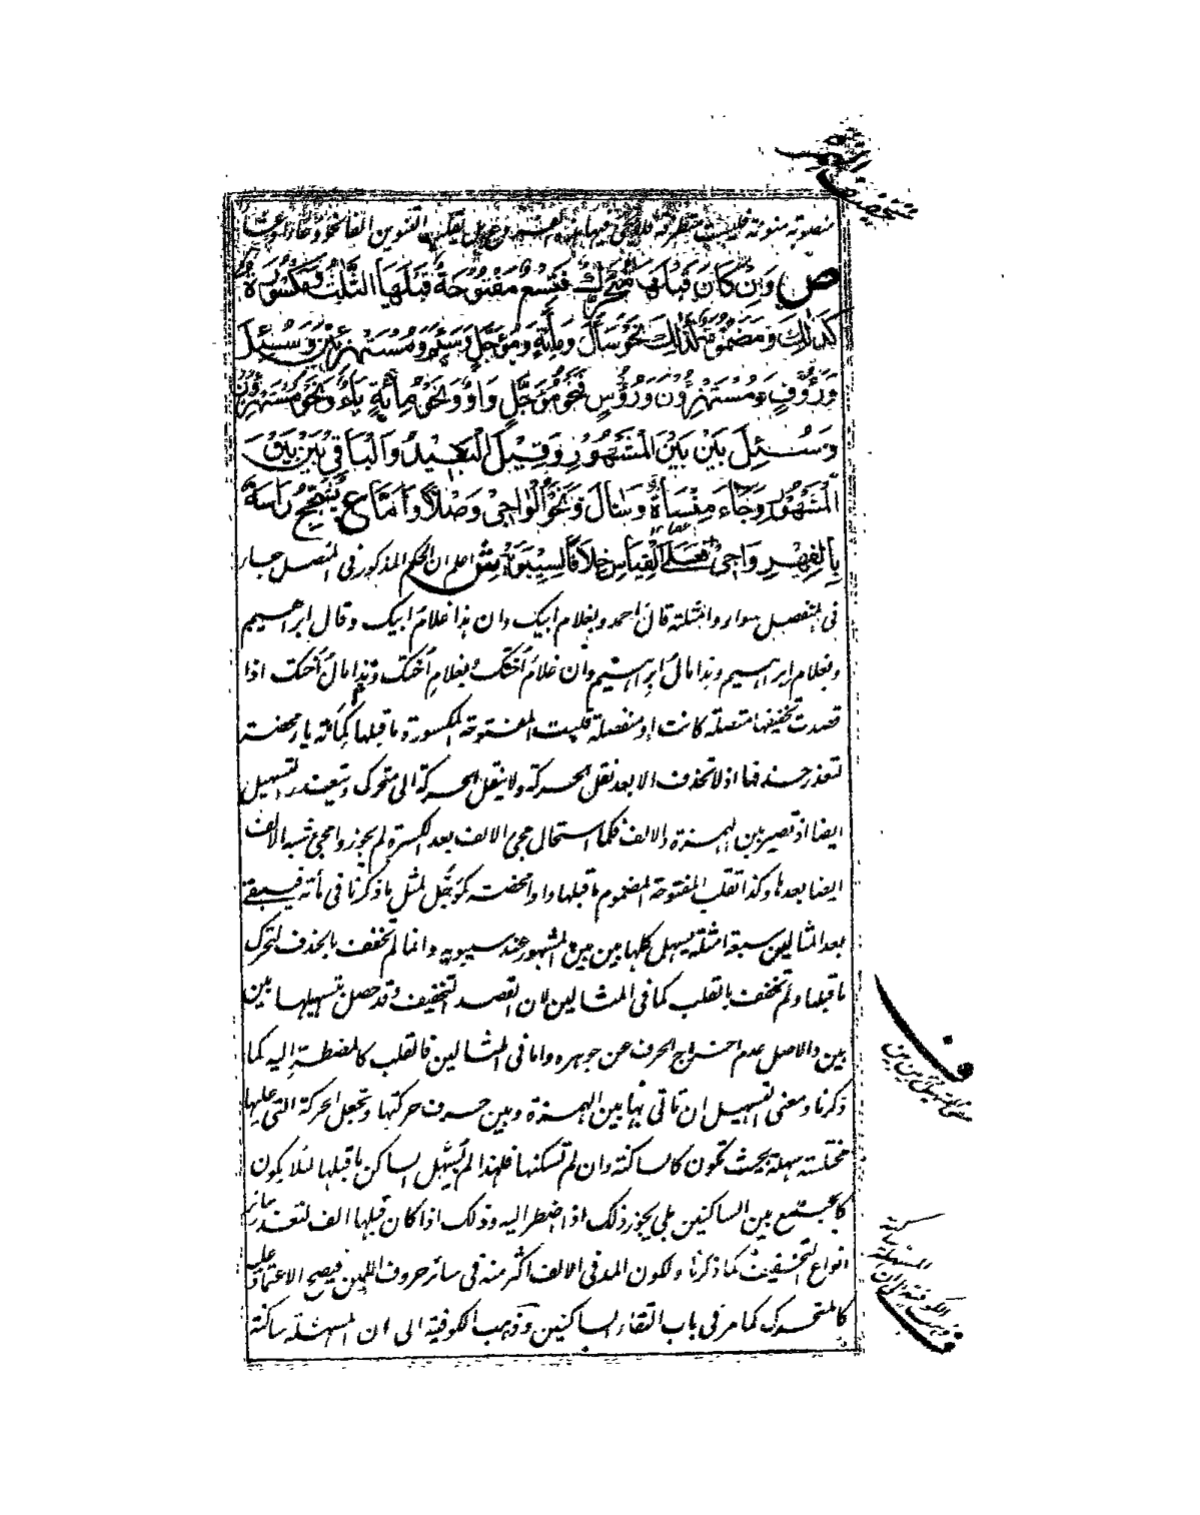 منصوبة منونة فليست متطرفة التنوين الفا نحو دعاءا وعشاءا
ص وَاِنْ كَانَ قَبْلَهَا مُتَحَرِّكٌ فَتِسْعٌ مَفْتُوحَةٌ قَبْلَهَا الثَّلٰثُ وَمَكْسُورَةٌ
كَذٰلِكَ وَمَضْمُومَةٌ كَذٰلِكَ نَحْوُ سَأَلَ وَمِأَةٍ وَمُؤَجَّلٍ وَسَئِمَ وَمُسْتَهْزِئِينَ وَسُئِلَ
وَرَؤُفٍ وَمُسْتَهْزِؤُنَ وَرُؤُسٍ فَنَحْوُ مُؤَجَّلٍ وَاوٌ وَنَحْوُ مِأَةٍ يَاءٌ وَنَحْوُ مُسْتَهْزِؤُنَ
وَسُئِلَ بَيْنَ بَيْنَ الْمَشْهُورِ وَقِيلَ الْبَعِيدُ وَالْبَاقِي بَيْنَ بَيْنَ
الْمَشْهُورِ وَجَاءَ مِنْسَاةٌ وَسَالَ وَنَحْوُ الْوَاجِي وَصْلًا وَاَمَّا ع يُشَجِّجُ رَاسَهُ
بِالْفِهْرِ وَاجِي فَعَلَى الْقِيَاسِ خِلَافًا لِسِيبَوَيْهِ ش اعلم ان الحكم المذكور فى المتصل جار
فى المنفصل سواء وامثلته قال احمد وبغلام ابيك وان هذا غلام ابيك وقال ابراهيم
وبغلام ابراهيم وهذا مال ابراهيم وان غلام اختك وبغلام اختك وهذا مال اختك اذا
قصدت تخفيفها متصلة كانت او منفصلة قلبت المفتوحة المكسورة ما قبلها كمائة ياء محضة
لتعذر حذفها اذ لا تحذف الا بعد نقل الحركة ولا ينقل الحركة الى متحرك ويتعذر التسهيل
ايضا اذ تصير بين الهمزة والالف فلما استحال مجئ الالف بعد الكسرة لم يجوزوا مجئ شبه الالف
ايضا بعدها وكذا تقلب المفتوحة المضموم ما قبلها واوا محضة كمؤجل لمثل ما ذكرنا فى مائة فيبقى
بعد المثالين سبعة امثلة يسهل كلها بين بين المشهور عند سيبويه وانما لم تخفف بالحذف لتحرك
ما قبلها ولم تخفف بالقلب كما فى المثالين لان القصد التخفيف وقد حصل بتسهيلها بين
بين والاصل عدم اخراج الحرف عن جوهره واما فى المثالين فالقلب كالمضطر اليه كما
ذكرنا ومعنى التسهيل ان تاتى بها بين الهمزة وبين حرف حركتها وتجعل الحركة التى عليها
مختلسة سهلة بحيث تكون كالساكنة وان لم تسكنها فلهذا لم يسهل الساكن ما قبلها لئلا يكون
كالجمع بين الساكنين بلى يجوز ذلك اذا اضطر اليه وذلك اذا كان قبلها الف لتعذر سائر
انواع التخفيف كما ذكرنا ولكون المد فى الالف اكثر منه فى سائر حروف اللين فيصح الاعتماد عليه
كالمتحرك كما مر فى باب التقاء الساكنين وذهب الكوفية الى ان المسهلة ساكنة
ف
معنى التسهيل بين بين
ف
وذهب الكوفية الى ان
المسهلة
ساكنة